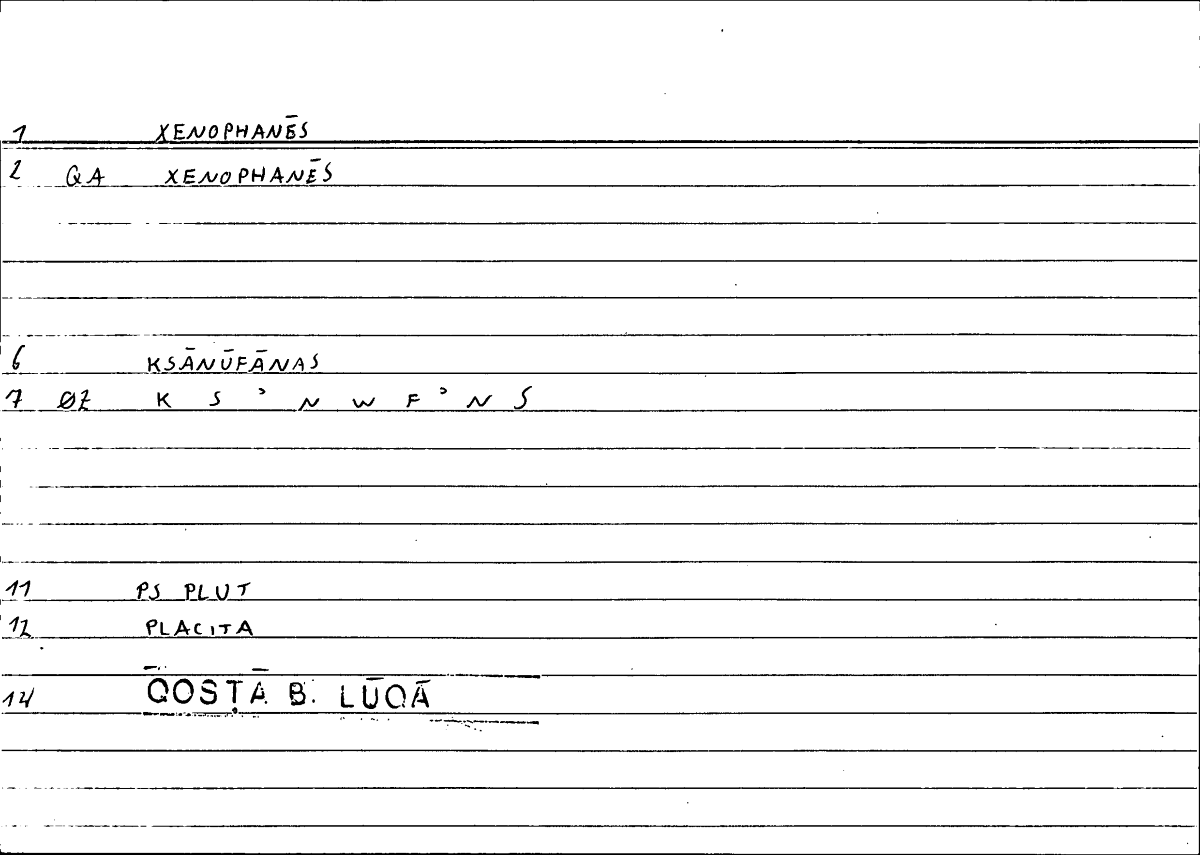 1 XENOPHANĒS
2 QA XENOPHANĒS
6 KSĀNŪFĀNAS
7 ØZ K S ʾ N W F ʾ N S
11 PS PLUT
12 PLACITA
14 QOSṬĀ B. LŪQĀ